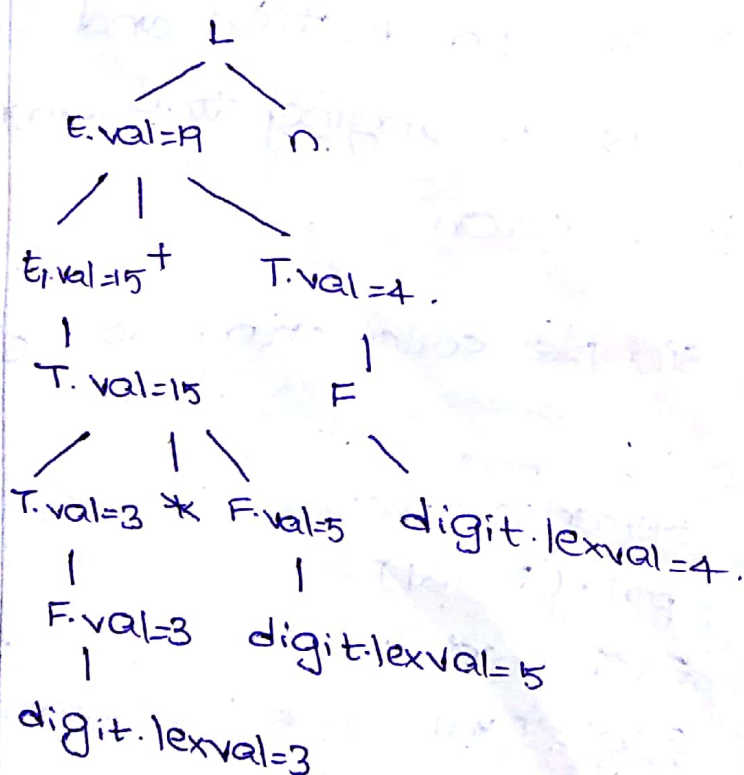 L
E.val=19 n.
E1.val=15 + T.val=4.
T.val=15 F
T.val=3 * F.val=5 digit.lexval=4.
F.val=3 digit.lexval=5
digit.lexval=3